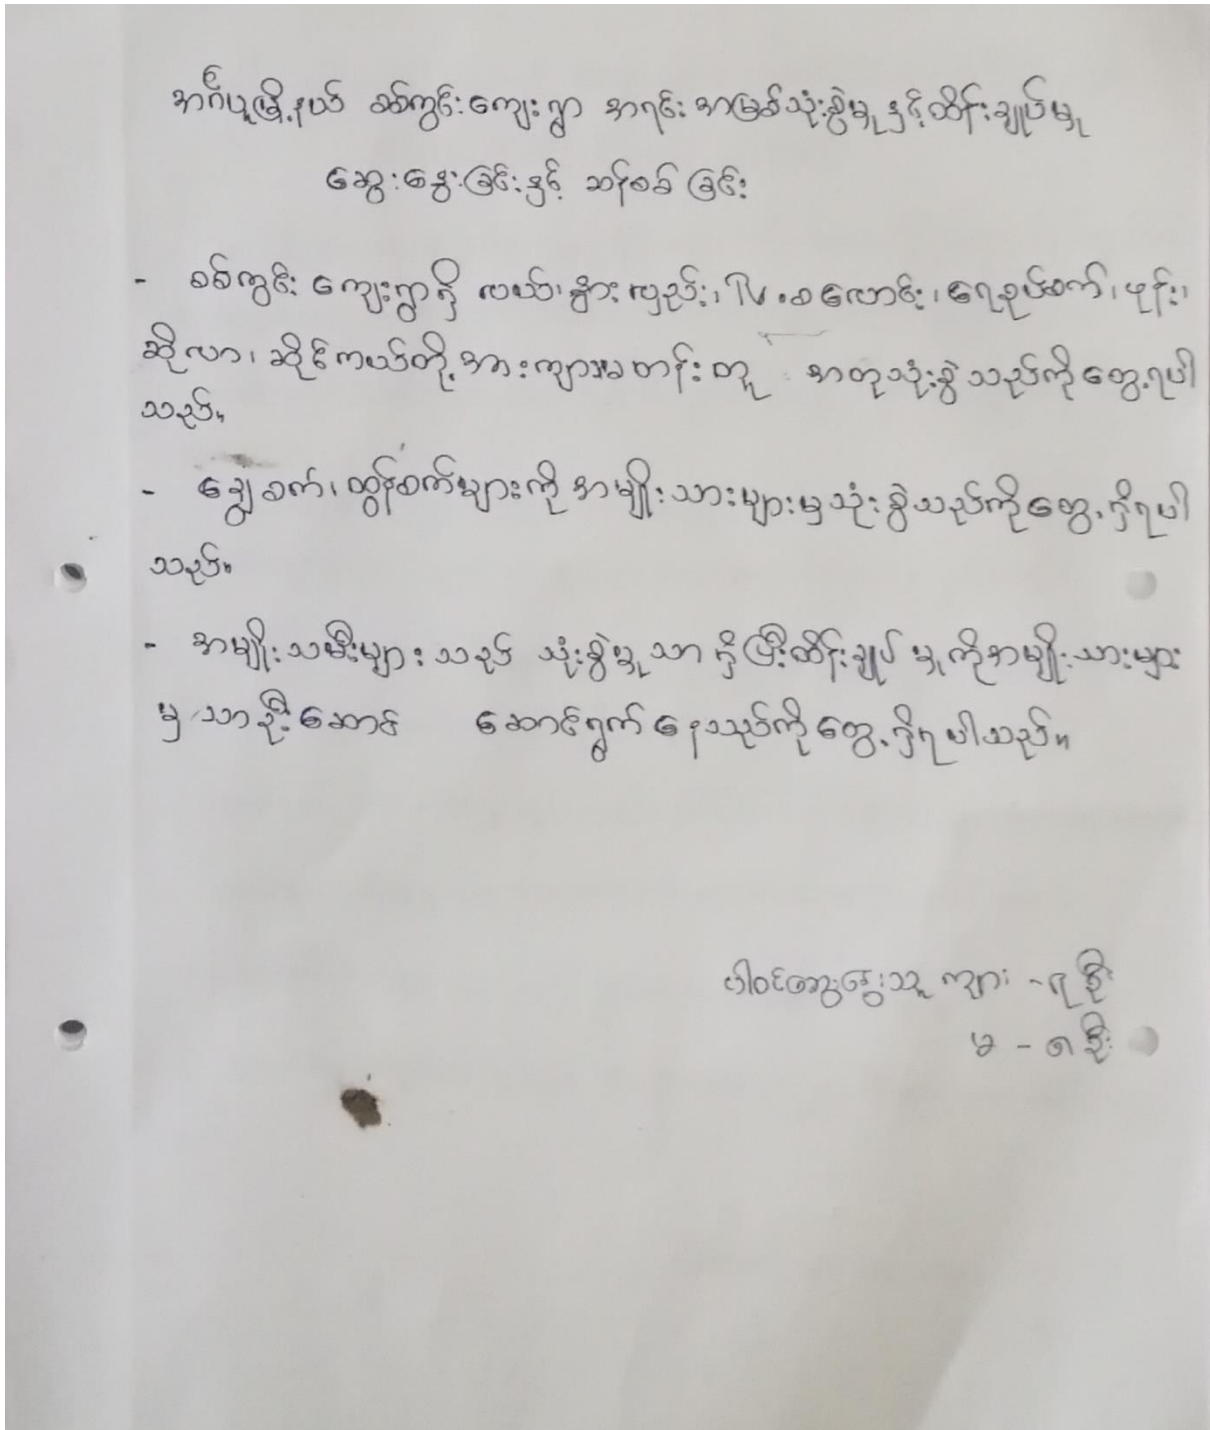 အင်္ဂပူမြို့နယ် စစ်ကွင်းကျေးရွာ အရင်းအမြစ်သုံးစွဲမှု နှင့်ထိန်းချုပ်မှု
ဆွေးနွေးခြင်းနှင့် ဆန်းစစ်ခြင်း
- စစ်ကွင်း ကျေးရွာရှိ လယ်၊ နွားလှည်း၊ TV ၊ စလောင်း၊ ရေစုပ်စက်၊ ဖုန်း၊
ဆိုလာ၊ ဆိုင်ကယ်တို့အားကျားမတန်းတူ အတူသုံးစွဲသည်ကိုတွေ့ရပါ
သည်။
- ချွေစက်၊ ထွန်စက်များကို အမျိုးသားများမှသုံးစွဲသည်ကိုတွေ့ရှိရပါ
သည်။
- အမျိုးသမီးများသည် သုံးစွဲမှုသာ ရှိပြီးထိန်းချုပ်မှုကိုအမျိုးသားများ
မှသာဦးဆောင် ဆောင်ရွက်နေသည်ကိုတွေ့ရှိရပါသည်။
ပါဝင်ဆွေးနွေးသူ ကျား - ၇ ဦး
မ - ၈ ဦး